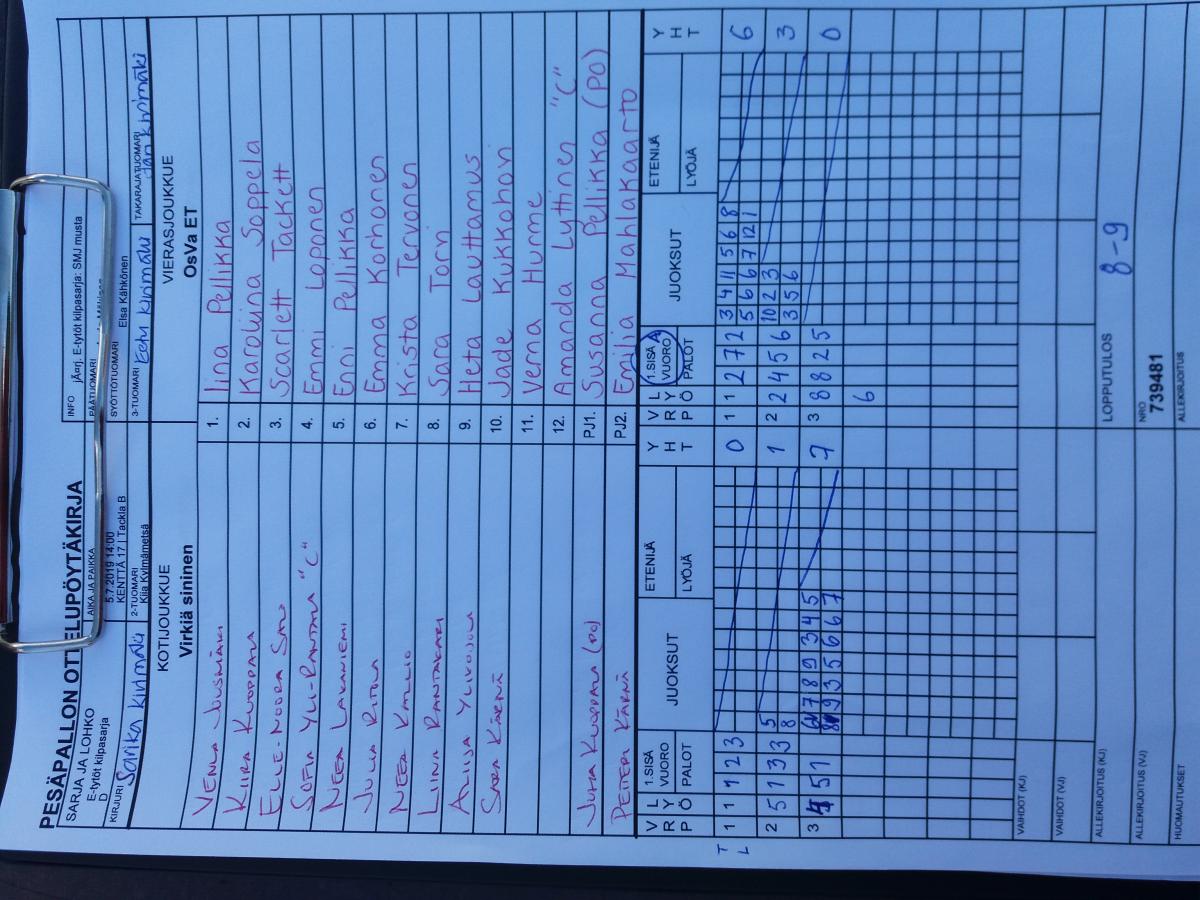 PESÄPALLON OTTELUPÖYTÄKIRJA
SARJA JA LOHKO
E-tytöt kilpasarja
D
AIKA JA PAIKKA
5.7.2019 14:00
KENTTÄ 17 | Tackla B
INFO jÄœrj. E-tytöt kilpasarja: SMJ musta
PÄÄTUOMARI
SYÖTTÖTUOMARI Elsa Kähkönen
KIRJURI Sarika Kivimäki
2-TUOMARI
Kiia Kylmämetsä
3-TUOMARI Eetu Kivimäki
TAKARAJATUOMARI Jari Kivimäki
KOTIJOUKKUE
Virkiä sininen
VIERASJOUKKUE
OsVa ET
VENLA JOUSMÄKI 1. Iina Pellikka
KIIRA KUOPPALA 2. Karoliina Soppela
ELLE-NOORA SALO 3. Scarlett Tackett
SOFIA YLI-RANTALA "C" 4. Emmi Lopponen
NEEA LAKANIEMI 5. Enni Pellikka
JULIA RITOLA 6. Emma Korhonen
NEEA KALLIO 7. Krista Tervonen
LIINA RANTAKARI 8. Sara Torri
ALIISA YLIKOJOLA 9. Heta Lauttamus
SARA KÄRNÄ 10. Jade Kukkohovi
11. Verna Hurme
12. Amanda Lyttinen "C"
JUHA KUOPPALA (PO) PJ1. Susanna Pellikka (PO)
PETTERI KÄRNÄ PJ2. Emilia Mahlakaarto
V R P L Y Ö 1.SISÄ VUORO PALOT JUOKSUT ETENIJÄ LYÖJÄ Y H T V R P L Y Ö 1.SISÄ VUORO PALOT JUOKSUT ETENIJÄ LYÖJÄ Y H T
T 1 1 1 2 3 0 1 1 2 7 2 3 4 11 5 6 8 6
L 5 6 6 7 12 1
2 5 1 3 3 5 1 2 2 4 5 6 10 2 3 3
8 3 5 6
3 5 1 7 8 9 3 4 5 7 3 8 8 2 5 0
9 3 5 6 6 7
6
VAIHDOT (KJ)
VAIHDOT (VJ)
ALLEKIRJOITUS (KJ) LOPPUTULOS 8-9
ALLEKIRJOITUS (VJ) NRO
739481
HUOMAUTUKSET ALLEKIRJOITUS